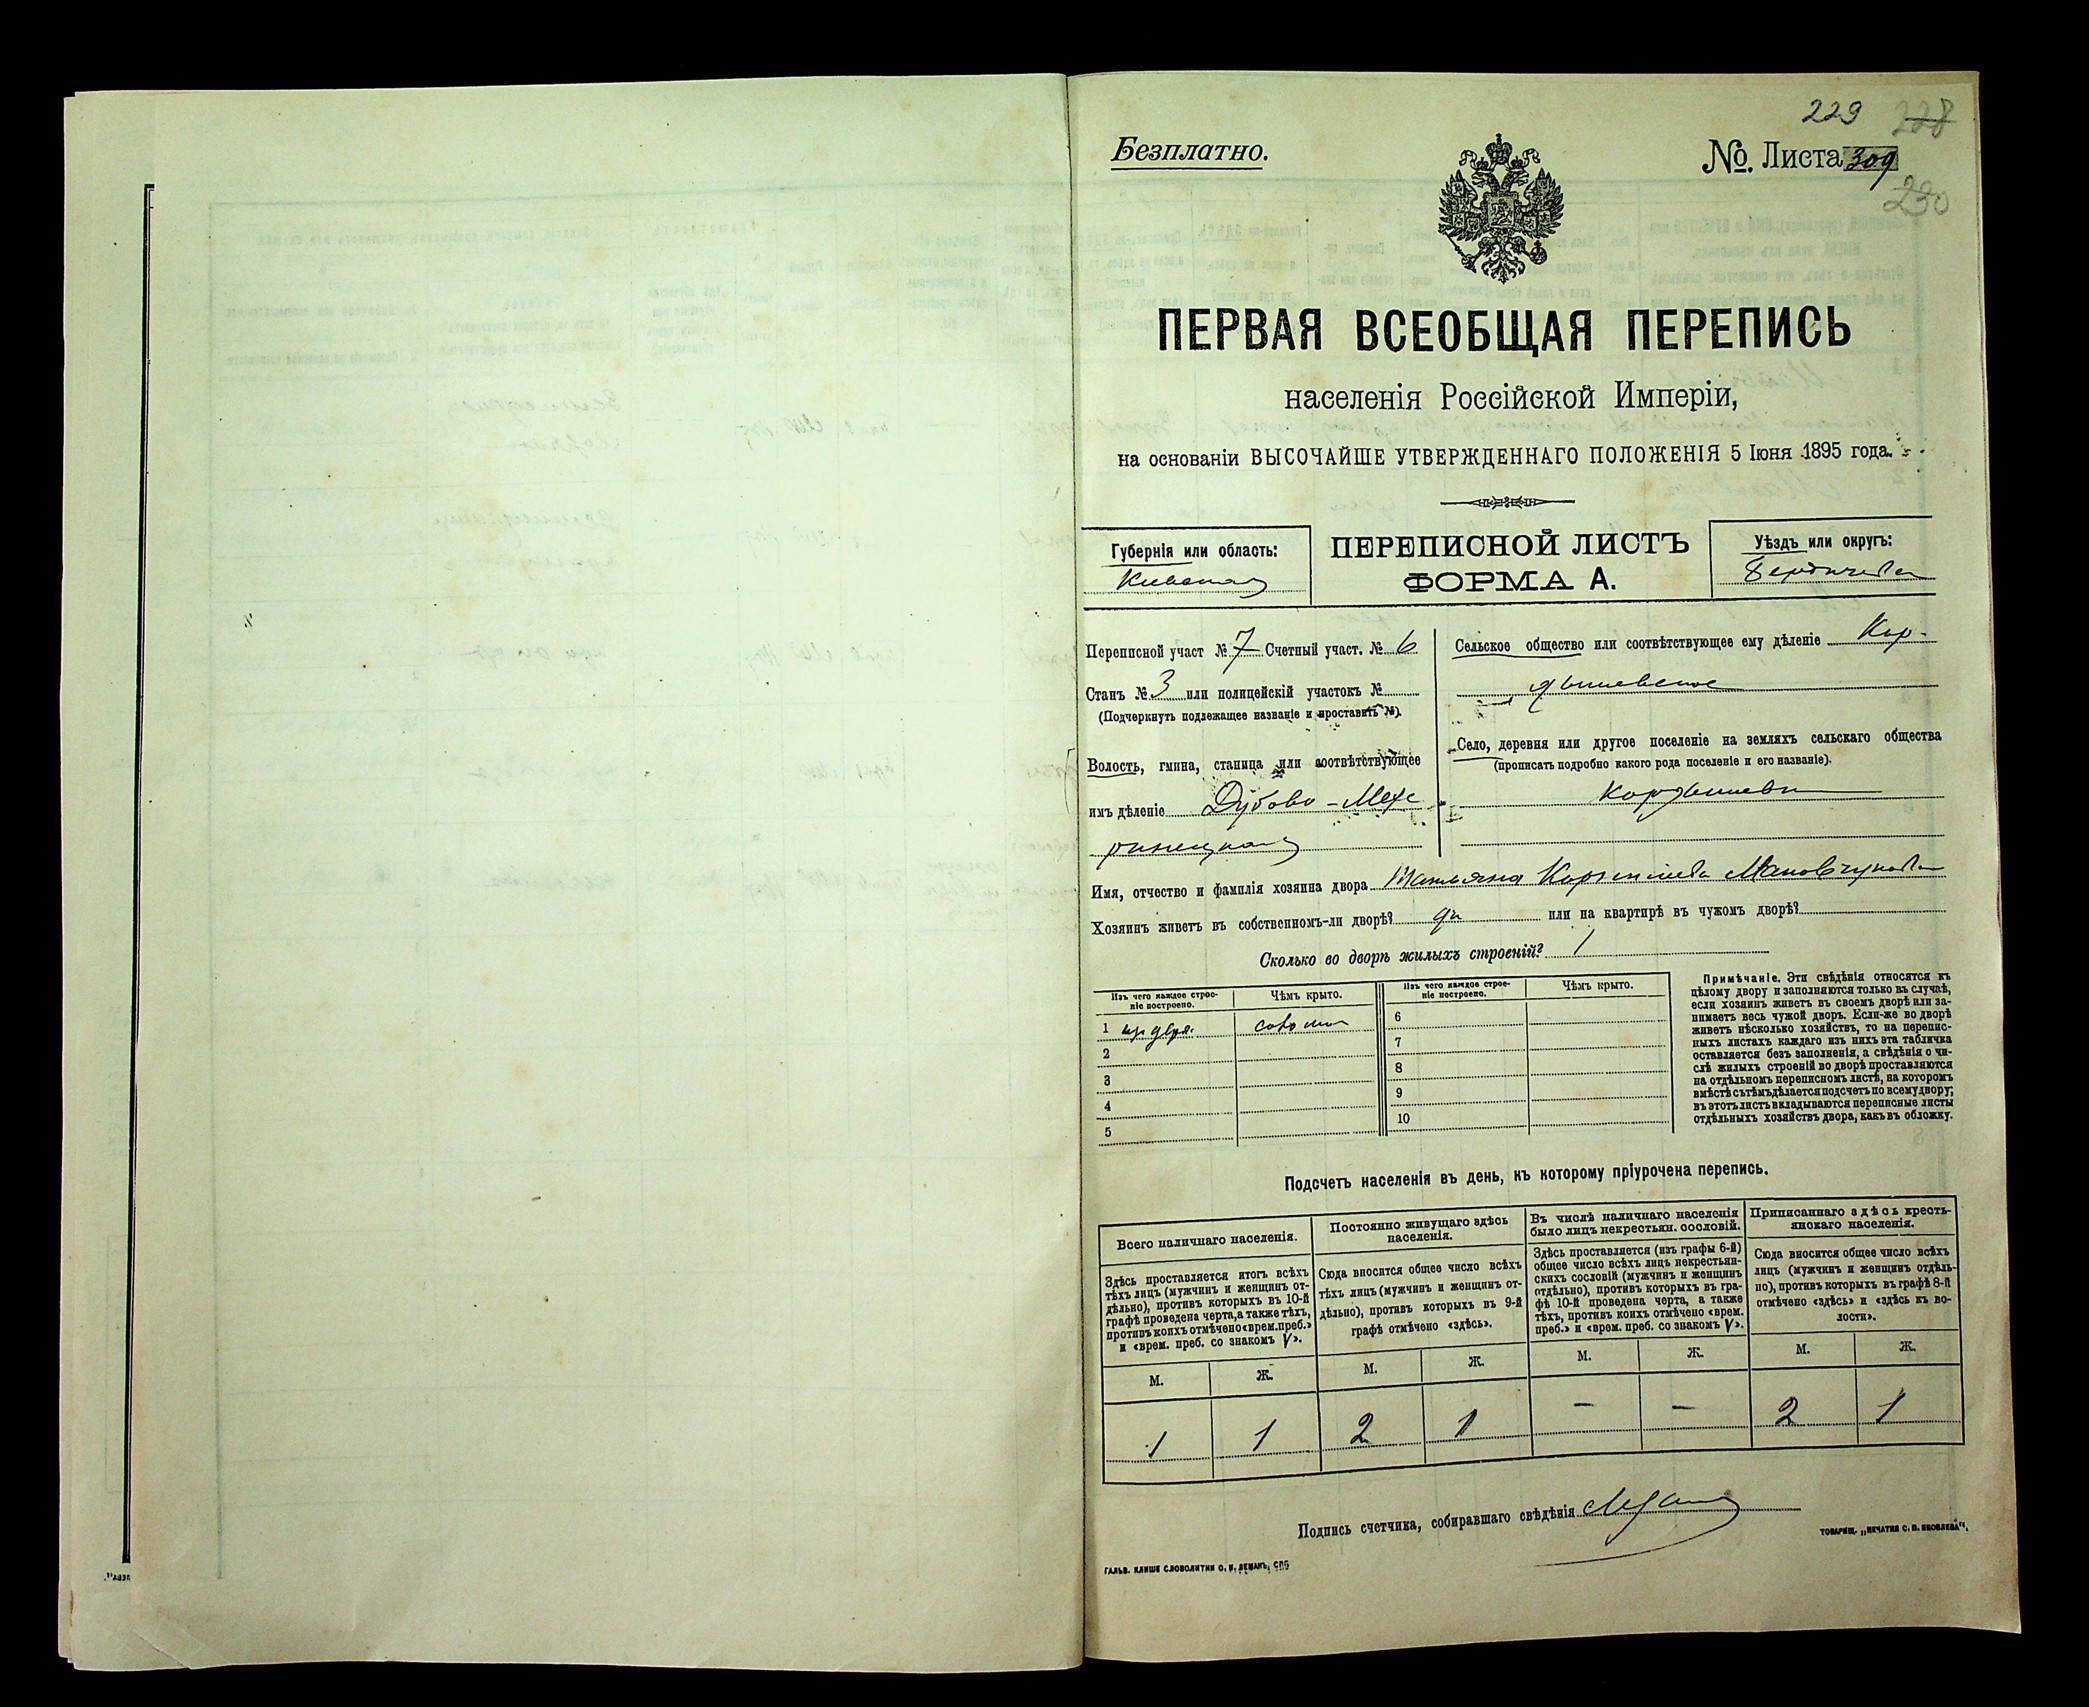 229 228
Безплатно.
№. Листа 309
230
ПЕРВАЯ ВСЕОБЩАЯ ПЕРЕПИСЬ
населенія Россійской Имперіи,
на основаніи ВЫСОЧАЙШЕ УТВЕРЖДЕННАГО ПОЛОЖЕНІЯ 5 Іюня 1895 года.
Губернія или область:
Кіевская
ПЕРЕПИСНОЙ ЛИСТЪ
ФОРМА А.
Уѣздъ или округъ:
Бердичевск
Переписной участ № 7 Счетный участ. № 6
Станъ № 3 или полицейскій участокъ №
(Подчеркнуть подлежащее названіе и проставить №).
Волость, гмина, станица или соотвѣтствующее
имъ дѣленіе Дубово-Меж
Сельское общество или соотвѣтствующее ему дѣленіе Кор-
дышевское
Село, деревня или другое поселеніе на земляхъ сельскаго общества
(прописать подробно какого рода поселеніе и его названіе).
Кордышевка
Имя, отчество и фамилія хозяина двора Татьяна
Хозяинъ живетъ въ собственномъ-ли дворѣ? да или на квартирѣ въ чужомъ дворѣ?
Сколько во дворѣ жилыхъ строеній? 1
Изъ чего каждое строе-
ніе построено.
Чѣмъ крыто.
Изъ чего каждое строе-
ніе построено.
Чѣмъ крыто.
1 из дер. соломой 6
2 7
3 8
4 9
5 10
Примѣчаніе. Эти свѣдѣнія относятся къ
цѣлому двору и заполняются только въ случаѣ,
если хозяинъ живетъ въ своемъ дворѣ или за-
нимаетъ весь чужой дворъ. Если-же во дворѣ
живетъ нѣсколько хозяйствъ, то на перепис-
ныхъ листахъ каждаго изъ нихъ эта табличка
оставляется безъ заполненія, а свѣдѣнія о чи-
слѣ жилыхъ строеній во дворѣ проставляются
на отдѣльномъ переписномъ листѣ, на которомъ
вмѣстѣ съ тѣмъ дѣлается подсчетъ по всему двору;
въ этотъ листъ вкладываются переписные листы
отдѣльныхъ хозяйствъ двора, какъ въ обложку.
Подсчетъ населенія въ день, къ которому пріурочена перепись.
Всего наличнаго населенія.
Здѣсь проставляется итогъ всѣхъ
тѣхъ лицъ (мужчинъ и женщинъ от-
дѣльно), противъ которыхъ въ 10-й
графѣ проведена черта, а также тѣхъ,
противъ коихъ отмѣчено «врем. преб.»
и «врем. преб. со знакомъ V».
Постоянно живущаго здѣсь
населенія.
Сюда вносится общее число всѣхъ
тѣхъ лицъ (мужчинъ и женщинъ от-
дѣльно), противъ которыхъ въ 9-й
графѣ отмѣчено «здѣсь».
Въ числѣ наличнаго населенія
было лицъ некрестьян. сословій.
Здѣсь проставляется (изъ графы 6-й)
общее число всѣхъ лицъ некрестьян-
скихъ сословій (мужчинъ и женщинъ
отдѣльно), противъ которыхъ въ гра-
фѣ 10-й проведена черта, а также
тѣхъ, противъ коихъ отмѣчено «врем.
преб.» и «врем. преб. со знакомъ V».
Приписаннаго здѣсь кресть-
янскаго населенія.
Сюда вносится общее число всѣхъ
лицъ (мужчинъ и женщинъ отдѣль-
но), противъ которыхъ въ графѣ 8-й
отмѣчено «здѣсь» и «здѣсь къ во-
лости».
М. Ж. М. Ж. М. Ж. М. Ж.
1 1 2 1 — — 2 1
Подпись счетчика, собиравшаго свѣдѣнія
ГАЛЬВ. КЛИШЕ СЛОВОЛИТНИ О. И. ЛЕМАНЪ, СПБ
ТОВАРИЩ. „ПЕЧАТНЯ С. П. ЯКОВЛЕВА".